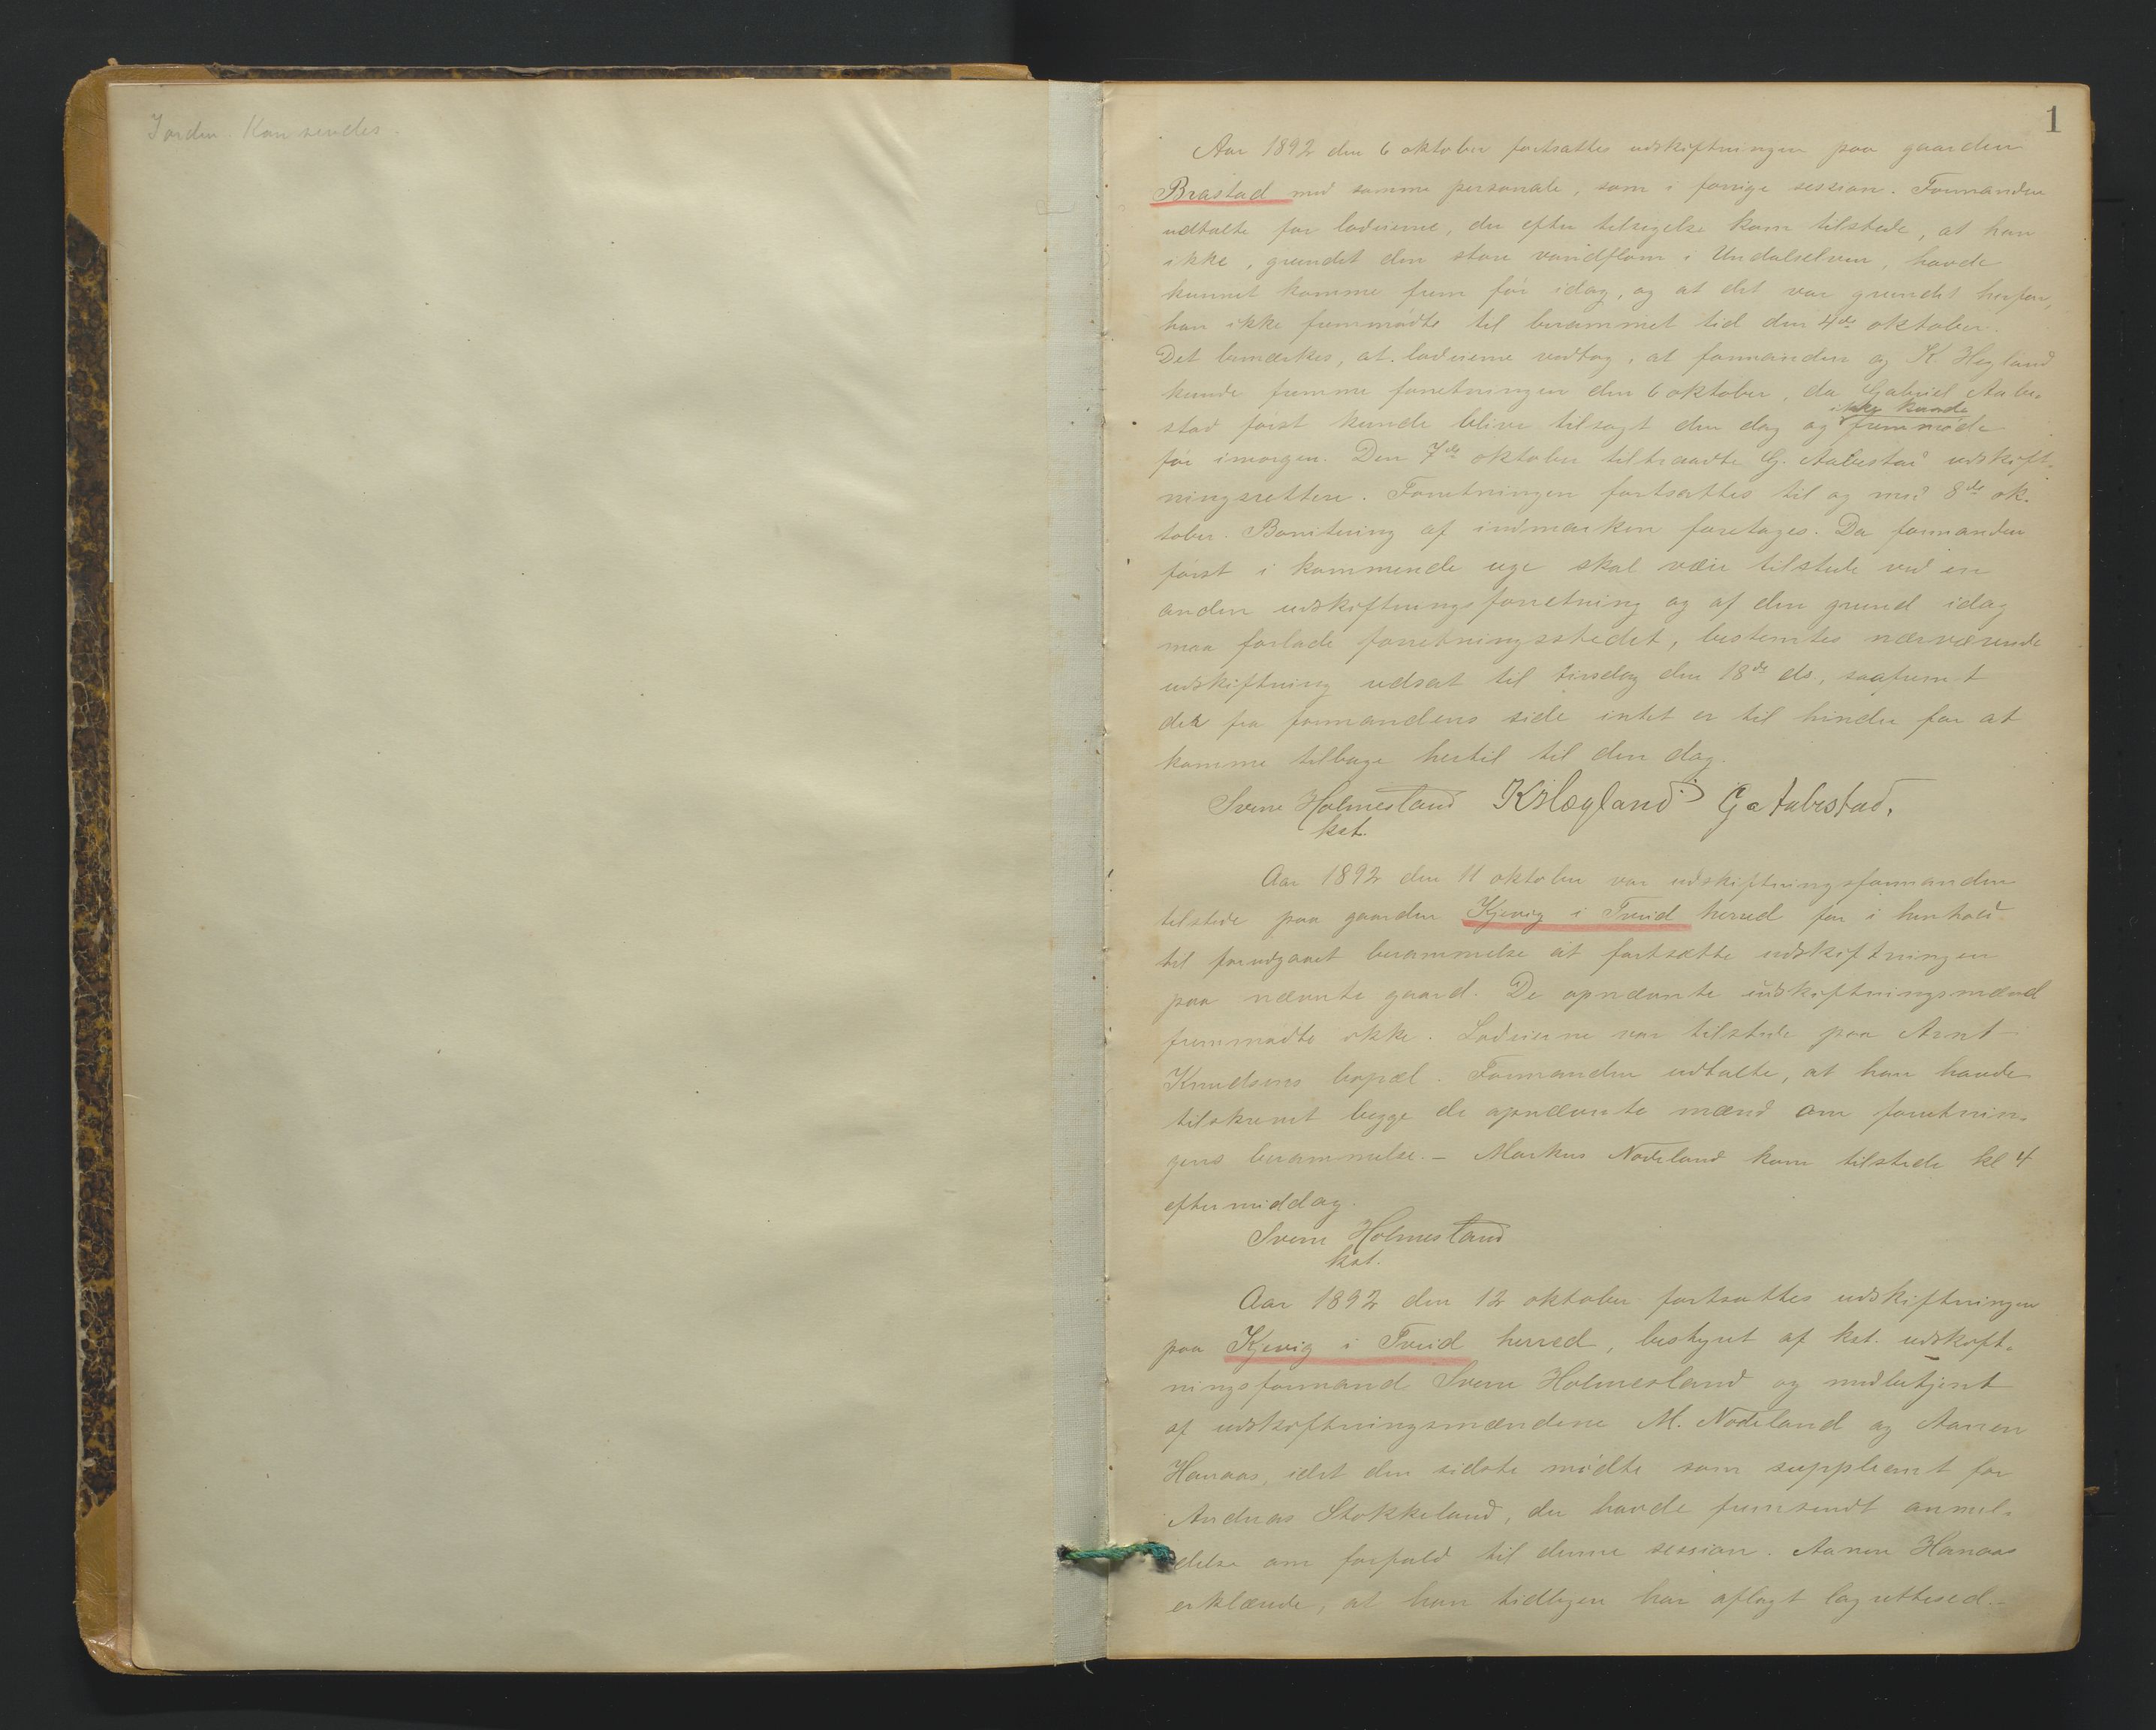 Jorden. Kan sendes.
1
Aar 1892 den 6 oktober fortsattes udskiftningen paa gaarden
Brastad med samme personale, som i forrige session. Formanden
udtalte for lodeierne, der efter tilsigelse kom tilstede, at han
ikke, grundet den store vandflom i Undalselven, havde
kunnet komme frem før idag, og at det var grundet herpaa,
han ikke fremmødte til berammet tid den 4de oktober.
Det bemærkes, at lodeierne vedtog, at formanden og K Hægland
kunde fremme forretningen den 6 oktober, da Gabriel Aabe-
stad først kunde blive tilsagt den dag og ikke kunde fremmøde
før imorgen. Den 7de oktober tiltraadte G. Aabestad udskift-
ningsretten. Forretningen fortsattes til og med 8de ok-
tober. Bonitering af indmarken foretages. Da formanden
først i kommende uge skal være tilstede ved en
anden udskiftningsforretning og af den grund idag
maa forlade forretningsstedet, bestemtes nærværende
udskiftning udsat til tirsdag den 18de ds., saafremt
der fra formandens side intet er til hinder for at
komme tilbage hertil til den dag.
Sven Holmesland K Hægland G a Aabestad.
kst.
Aar 1892 den 11 oktober var udskiftningsformanden
tilstede paa gaarden Kjevig i Tveid herred for i henhold
til forudgaaet berammelse at fortsætte udskiftningen
paa nævnte gaard. De opnævnte udskiftningsmænd
fremmødte ikke. Lodeierne var tilstede paa Arnt
Knudsens bopæl. Formanden udtalte, at han havde
tilskrevet begge de opnævnte mænd om forretnin-
gens berammelse. – Markus Nodeland kom tilstede kl 4
eftermiddag.
Sven Holmesland
kst.
Aar 1892 den 12 oktober fortsattes udskiftningen
paa Kjevig i Tveid herred, bestyret af kst. udskift-
ningsformand Sven Holmesland og medbetjent
af udskiftningsmændene M. Nodeland og Aanen
Hanaas, idet den sidste mødte som suppleant for
Andreas Stokkeland, der havde fremsendt anmel-
delse om forfald til denne session. Aanen Hanaas
erklærede, at han tidligere har aflagt lagrettesed.–